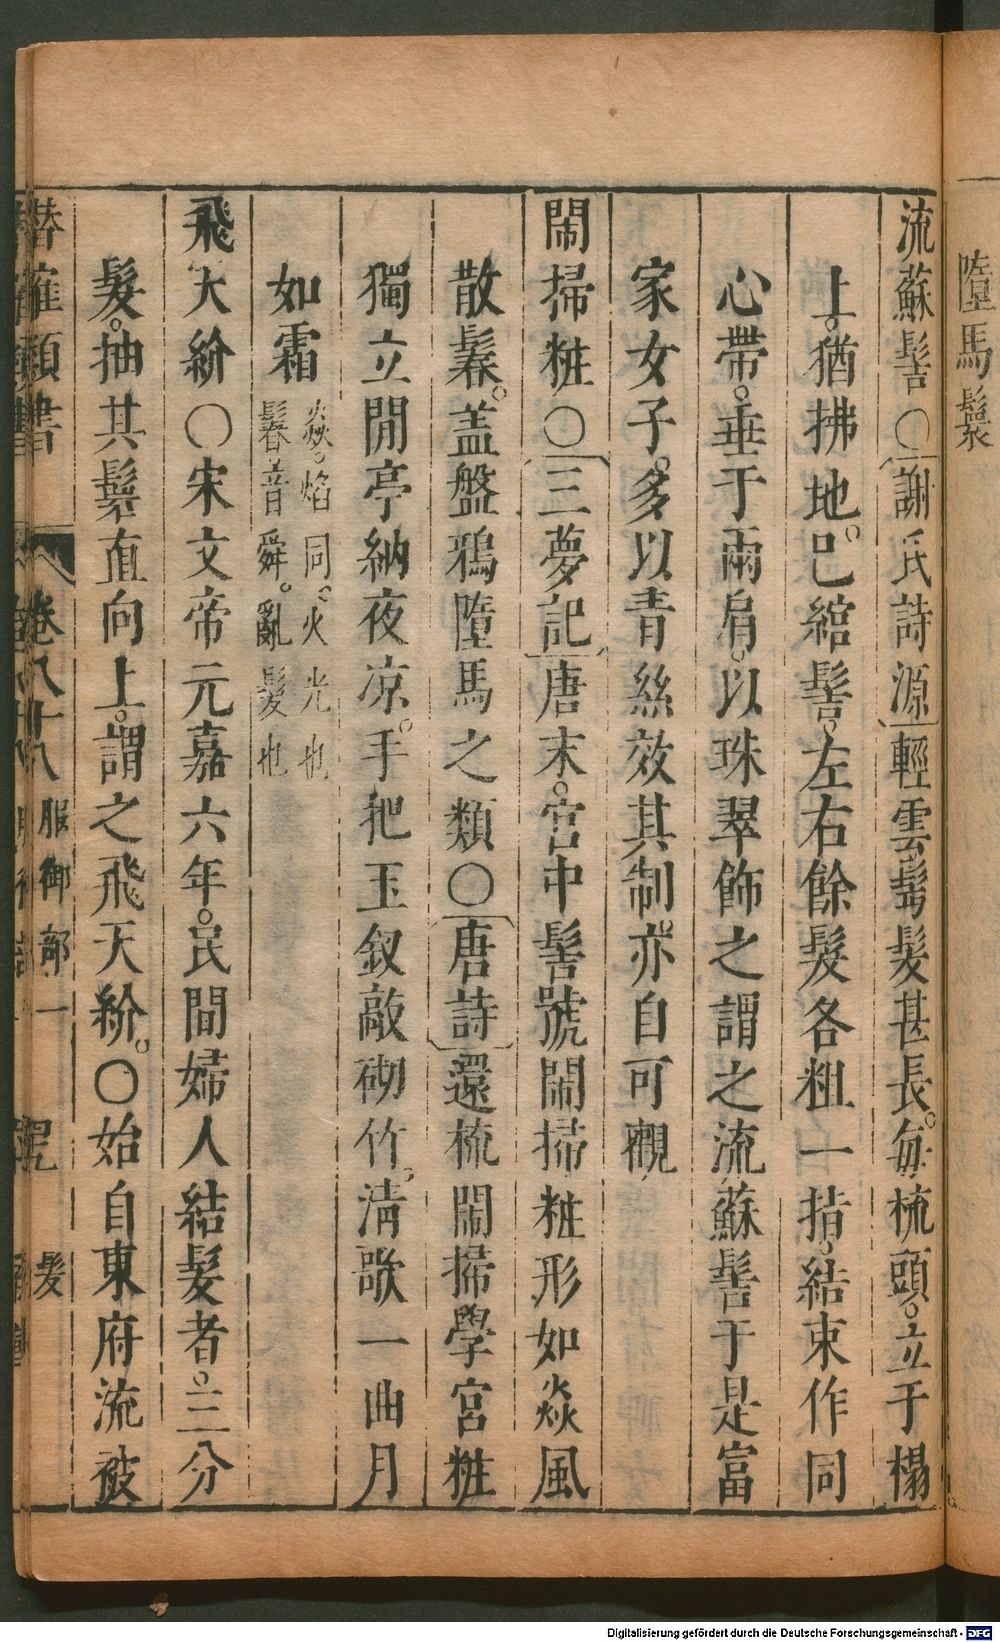 流蘇髻○謝氏詩源輕雲鬢髮甚長。每梳頭。立于榻
上。猶拂地。已綰髻。左右餘髮各粗一指。結束作同
心帶。垂于兩肩。以珠翠飾之謂之流蘇髻于是富
家女子。多以青絲效其制。亦自可觀
鬧掃粧○三夢記唐末。宮中髻號鬧掃粧形如焱風
散鬈。盖盤鴉墮馬之類○唐詩還梳鬧掃學宮粧
獨立閒亭納夜凉。手把玉釵敲砌竹。淸歌一曲月
如霜
焱。焰同。火光也
鬊音舜。亂髮也
飛天紒○宋文帝元嘉六年。民間婦人結髮者。三分
髮。抽其鬟直向上。謂之飛天紒。○始自東府流被
潛確類書
卷八十八
服御部一
髮
墮馬鬟
Digitalisierung gefördert durch die Deutsche Forschungsgemeinschaft - DFG